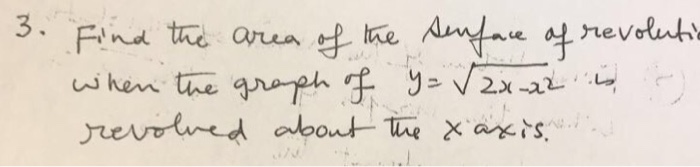 3. Find the area of the surface of revoluti
when the graph of y = √2x-x² is
revolved about the x axis.